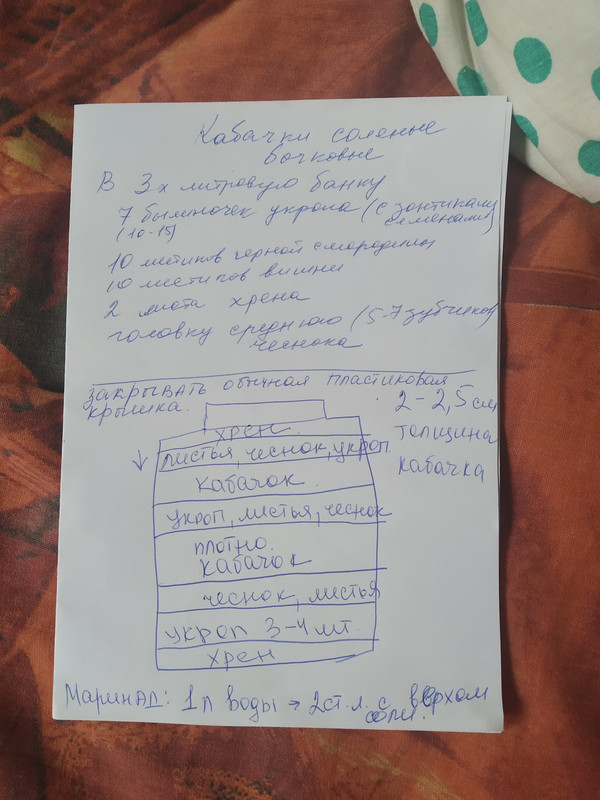 Кабачки соленые
бочковые
В 3х литровую банку
7 былиночек укропа (с зонтиками
(10-15) семенами)
10 листиков черной смородины
10 листиков вишни
2 листа хрена
головку среднюю (5-7 зубчиков)
чеснока
закрывать обычная пластиковая
крышка.
2-2,5 см
толщина
кабачка
хрен.
листья, чеснок, укроп.
кабачок.
укроп, листья, чеснок
плотно.
кабачок
чеснок, листья
укроп 3-4 шт.
хрен
Маринад: 1л воды → 2ст.л. с верхом
соли.